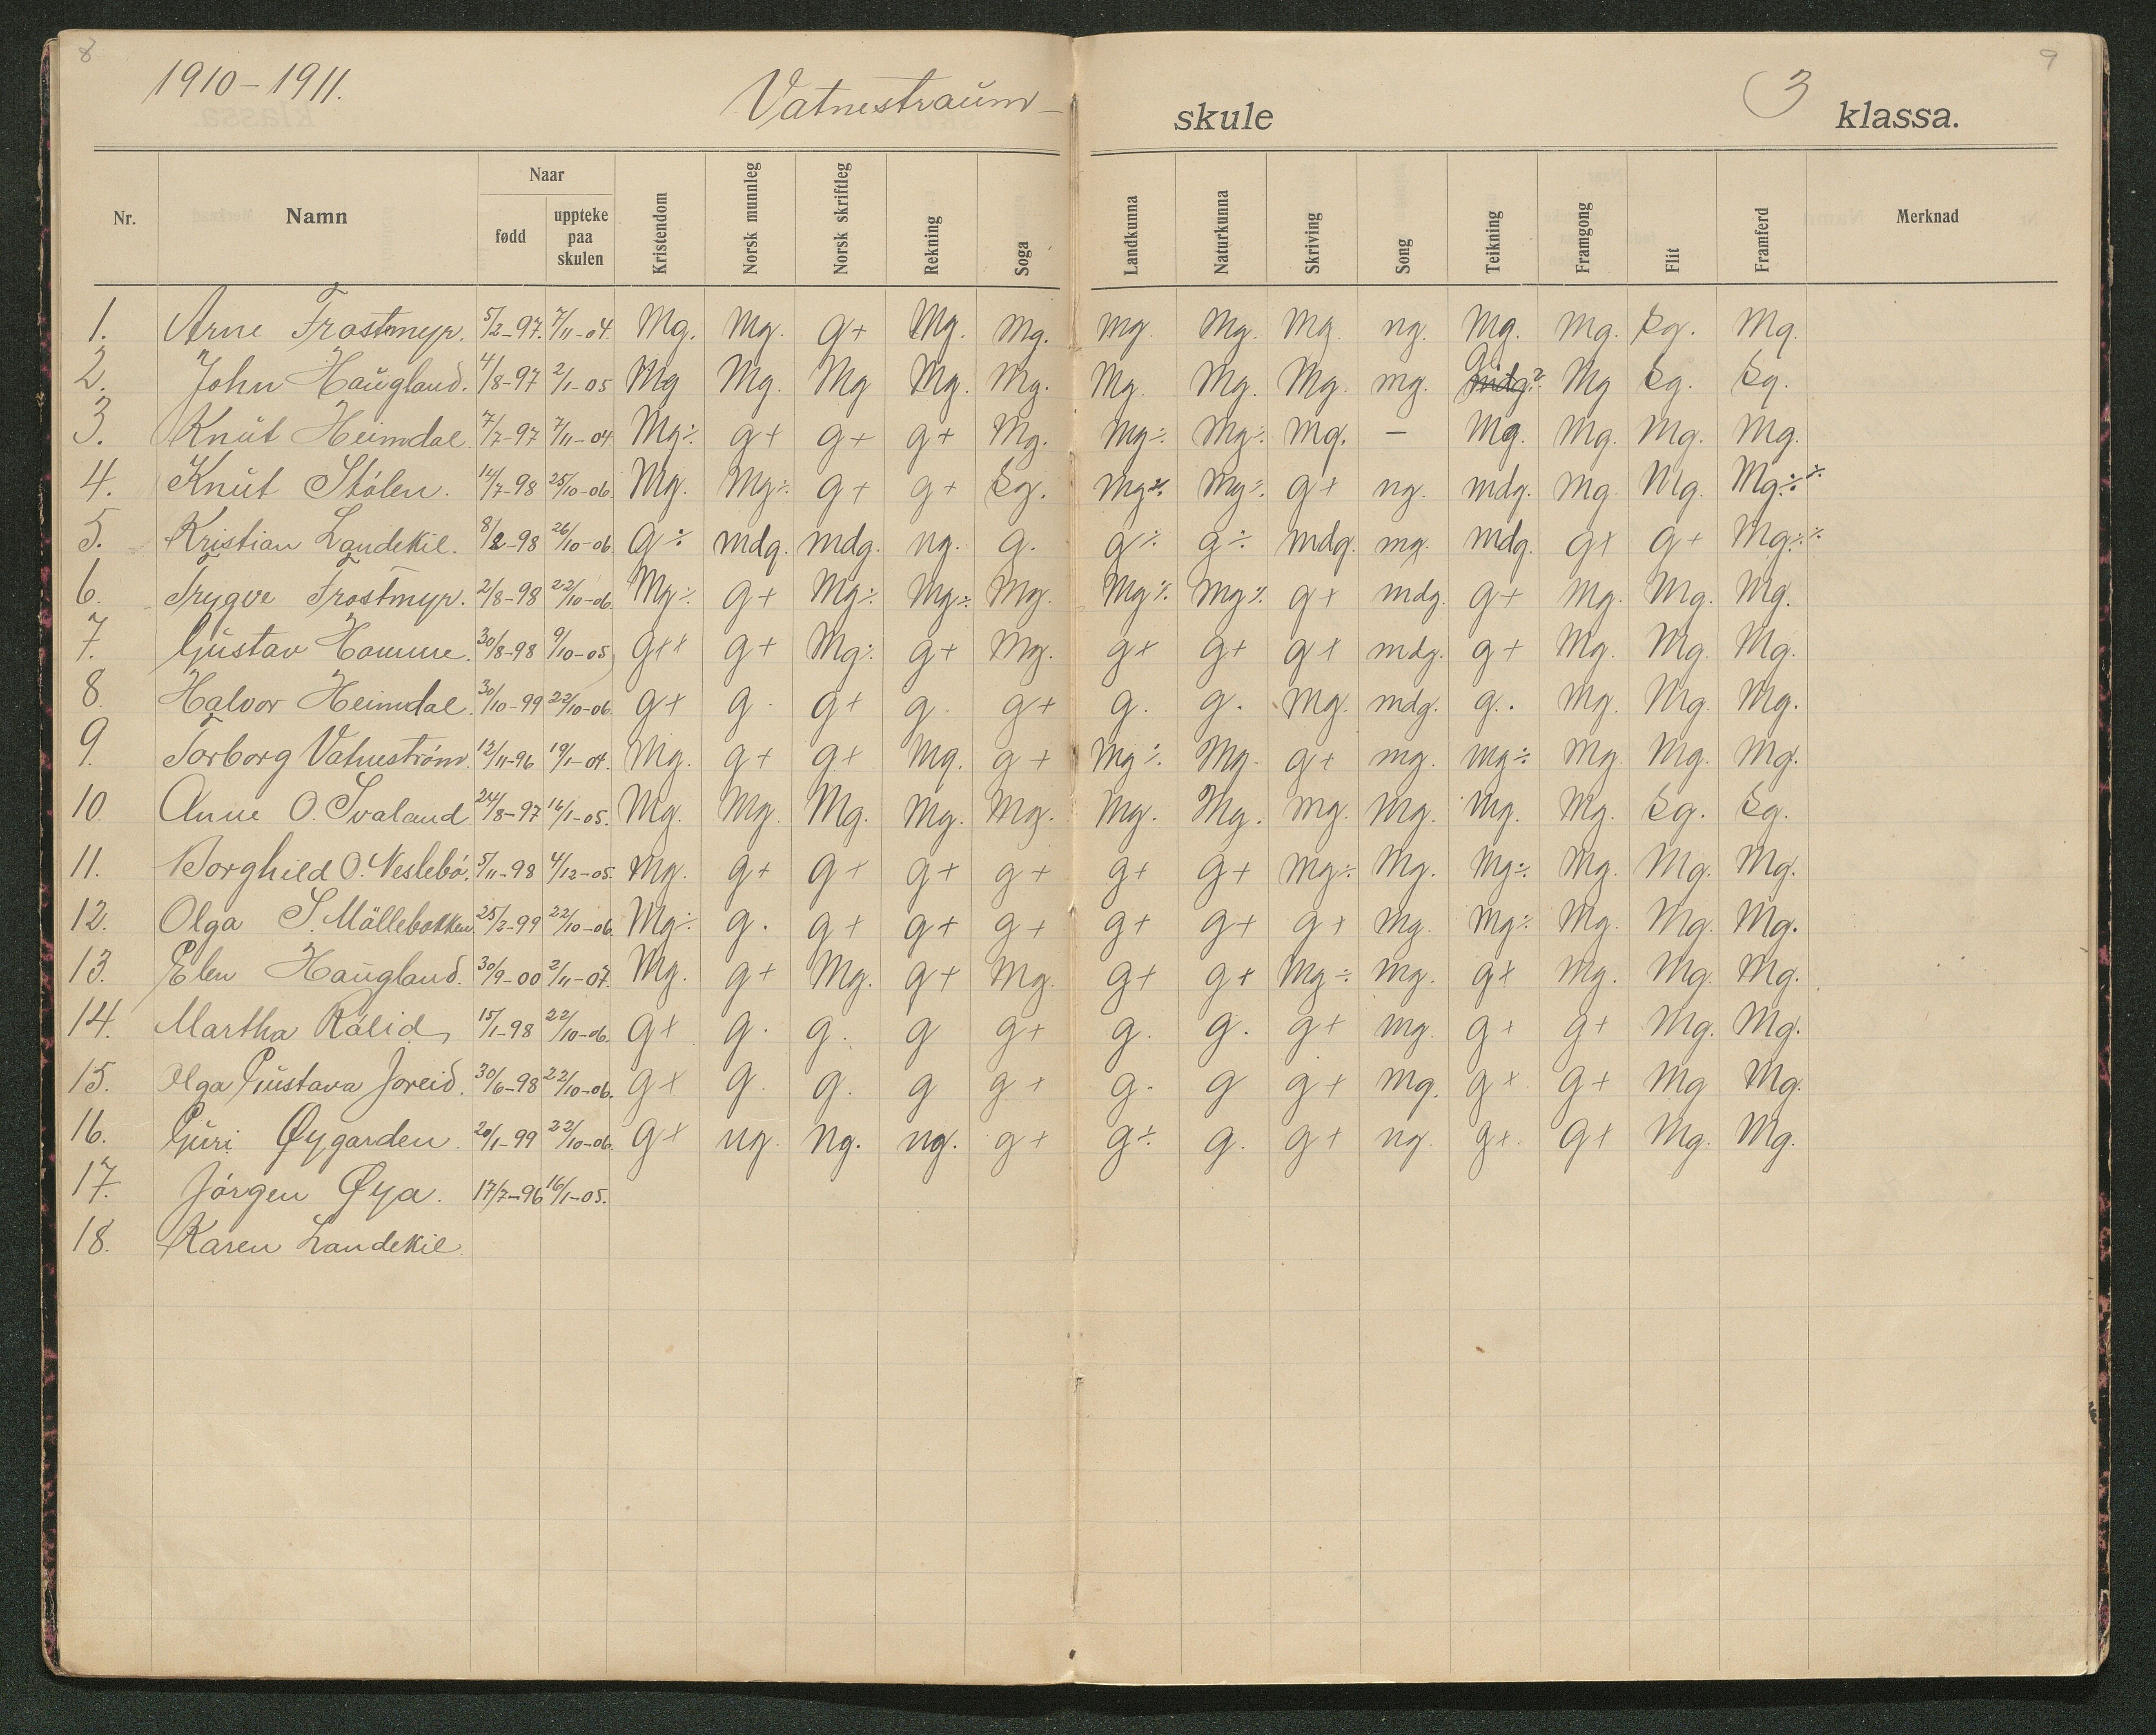 8
9
1910-1911.
Vatnestraum-
skule
3
klassa.
Nr. Namn Naar fødd uppteke paa skulen Kristendom Norsk munnleg Norsk skriftleg Rekning Soga Landkunna Naturkunna Skriving Song Teikning Framgong Flit Framferd Merknad
1. Arne Frostmyr. 5/2-97. 7/11-04. Mg. Mg. g+ Mg. Mg. Mg. Mg. Mg. ng. Mg. Mg. Sg. Mg.
2. John Haugland. 4/8-97 2/1-05 Mg Mg. Mg Mg. Mg. Mg. Mg. Mg. mg. G Mg Sg. Sg.
3. Knut Heimdal. 7/7-97 7/11-04. Mg÷ g+ g+ g+ Mg. Mg÷ Mg÷ Mg. – Mg. Mg. Mg. Mg.
4. Knut Stólen. 14/7-98 25/10-06. Mg. Mg÷ g+ g+ Sg. Mg÷ Mg÷ g+ ng. mdg. Mg. Mg. Mg÷÷
5. Kristian Landekil. 8/2-98 26/10-06. G÷ mdg. mdg. ng. g. g÷ g÷ mdg. mg. mdg. g+ g+ Mg÷÷
6. Trygve Frostmyr. 2/8-98 22/10-06. Mg÷ g+ Mg÷ Mg÷ Mg. Mg÷ Mg÷ g+ mdg. g+ Mg. Mg. Mg.
7. Gustav Homme. 30/8-98 9/10-05 g++ g+ Mg÷ g+ Mg. g+ g+ g+ mdg. g+ Mg. Mg. Mg.
8. Halvor Heimdal. 30/10-99 22/10-06. g+ g. g+ g. g+ g. g. Mg. mdg. g. Mg. Mg. Mg.
9. Torborg Vatnestrøm. 12/11-96 19/1-04. Mg. g+ g+ Mg. g+ Mg÷ Mg. g+ mg. mg÷ Mg. Mg. Mg.
10. Anne O. Svaland 24/8-97 16/1-05. Mg. Mg. Mg. Mg. Mg. Mg. Mg. Mg. Mg. Mg. Mg. Sg. Sg.
11. Borghild O. Neslebø. 5/11-98 4/12-05. Mg. g+ g+ g+ g+ g+ g+ Mg÷ Mg. Mg÷ Mg. Mg. Mg.
12. Olga S. Mållebakken 25/2-99 22/10-06. Mg÷ g. g+ g+ g+ g+ g+ g+ mg. Mg÷ Mg. Mg. Mg.
13. Elen Haugland. 30/9-00 2/11-07. Mg. g+ Mg. g+ Mg. g+ g+ Mg÷ mg. g+ Mg. Mg. Mg.
14. Martha Rólid 15/1-98 22/10-06. g+ g. g. g g+ g. g. g+ mg. g+ g+ Mg. Mg.
15. Olga Gustava Joreid. 30/6-98 22/10-06. g+ g. g. g g+ g. g g+ mg. g+ g+ Mg Mg.
16. Guri Øygarden. 20/1-99 22/10-06. g+ ng. ng. ng. g+ g÷ g. g+ ng. g+ g+ Mg. Mg.
17. Jórgen Øya. 17/7-96 16/1-05.
18. Karen Landekil.